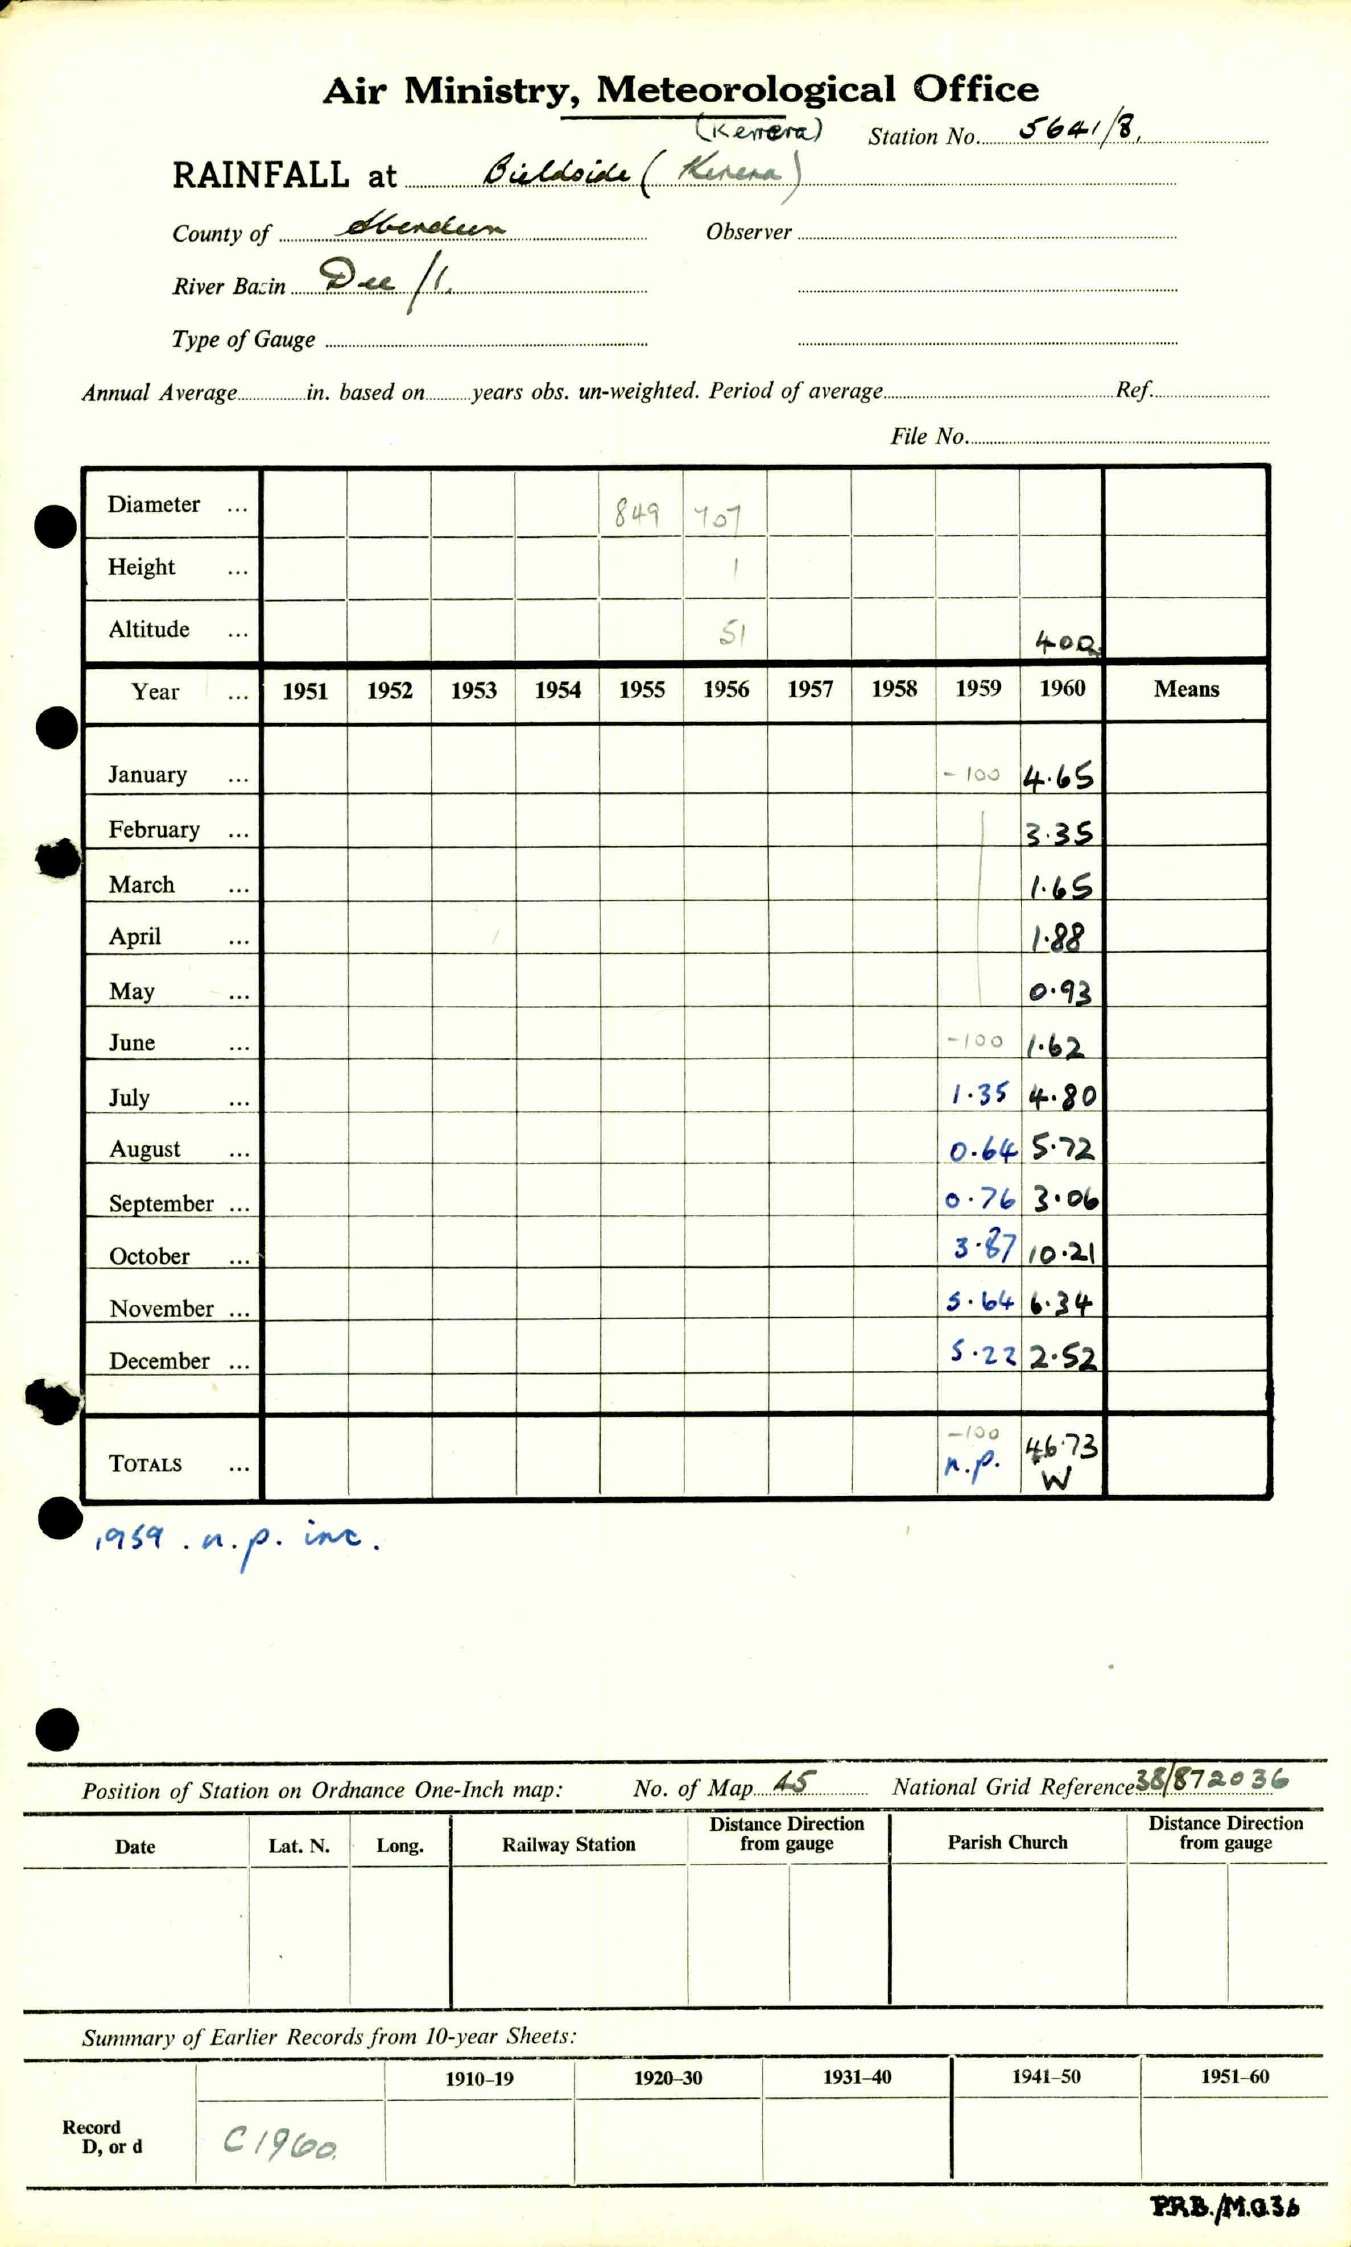 Air Ministry, Meteorological Office
(Kerrera) Station No. 5641/8.
RAINFALL at Bieldside (Kerrera)
County of Aberdeen Observer
River Basin Dee /1.
Type of Gauge
Annual Average in. based on years obs. un-weighted. Period of average Ref.
File No.
Diameter ... 849 707
Height ... 1
Altitude ... 51 400
Year ... 1951 1952 1953 1954 1955 1956 1957 1958 1959 1960 Means
January ... -100 4.65
February ... 3.35
March ... 1.65
April ... 1.88
May ... 0.93
June ... -100 1.62
July ... 1.35 4.80
August ... 0.64 5.72
September ... 0.76 3.06
October ... 3.87 10.21
November ... 5.64 6.34
December ... 5.22 2.52
-100
TOTALS ... n.p. 46.73
W
1959. n.p. inc.
Position of Station on Ordnance One-Inch map: No. of Map 45 National Grid Reference 38/872036
Date Lat. N. Long. Railway Station Distance Direction from gauge Parish Church Distance Direction from gauge
Summary of Earlier Records from 10-year Sheets:
1910–19 1920–30 1931–40 1941–50 1951–60
Record
D, or d C1960.
P.R.B./M.O.36